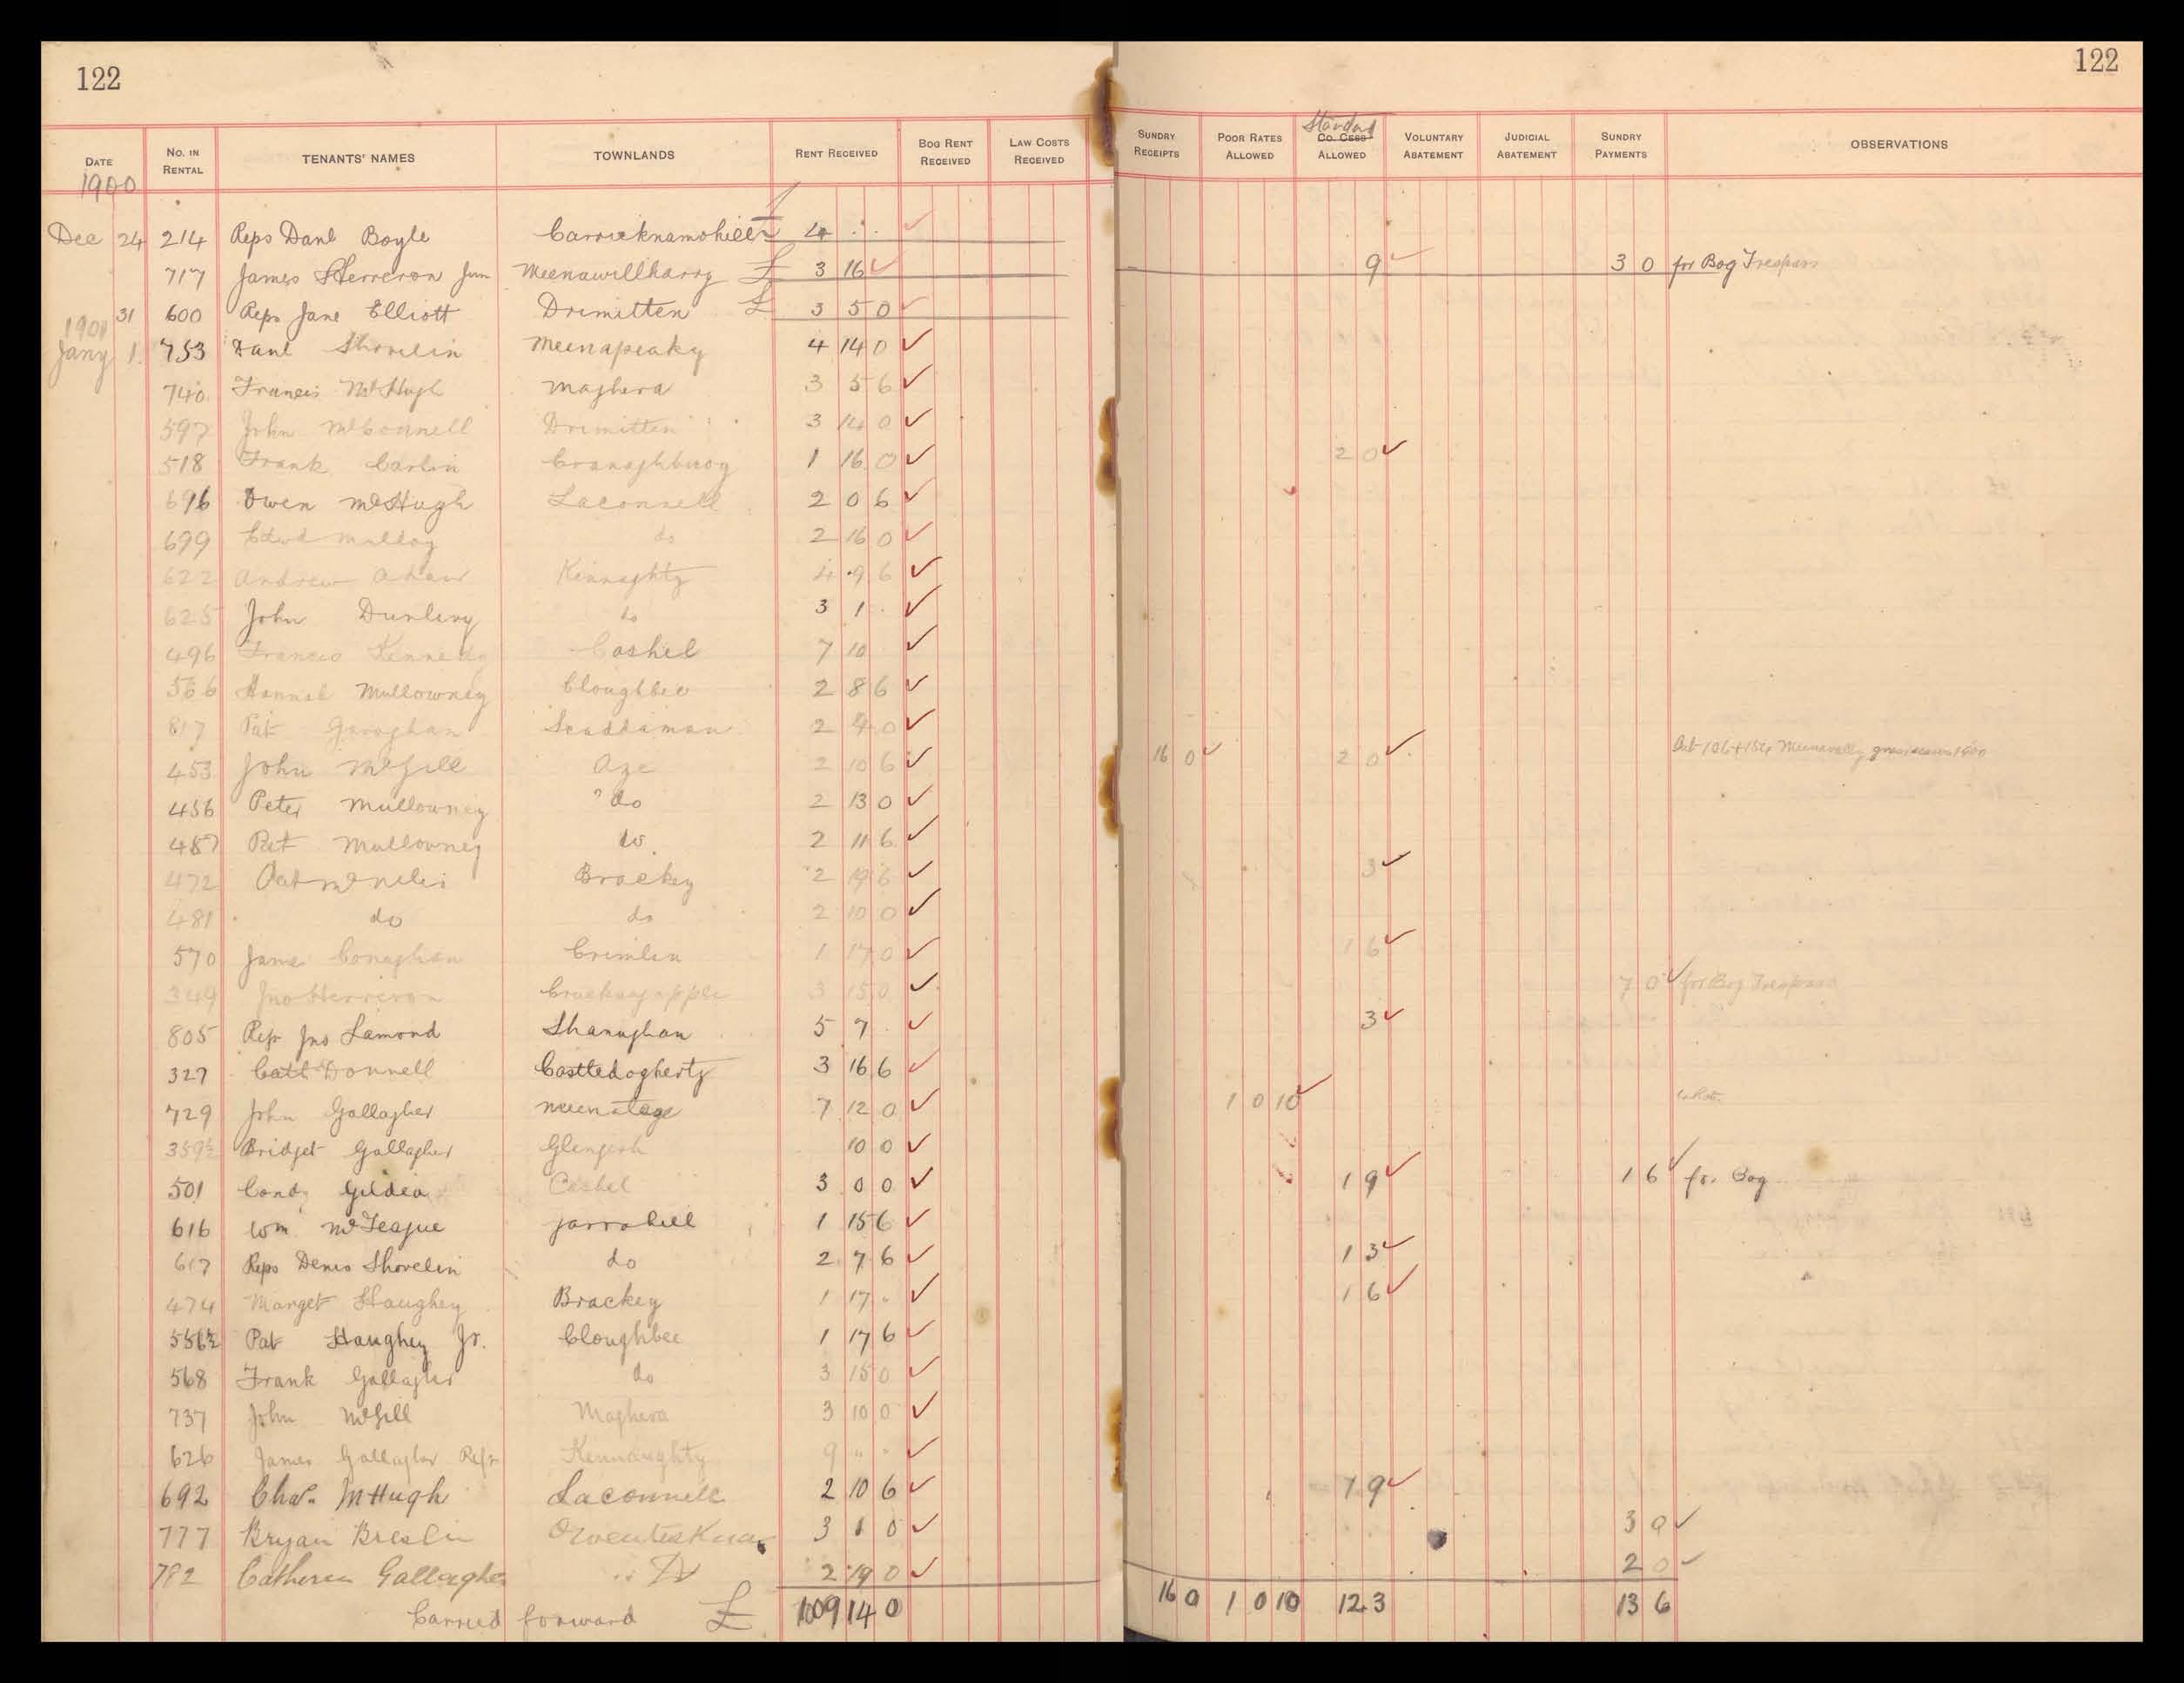 122
122
DATE No. IN RENTAL TENANTS' NAMES TOWNLANDS RENT RECEIVED BOG RENT RECEIVED LAW COSTS RECEIVED SUNDRY RECEIPTS POOR RATES ALLOWED Standard Co. Cess ALLOWED VOLUNTARY ABATEMENT JUDICIAL ABATEMENT SUNDRY PAYMENTS OBSERVATIONS
1900
Dec 24 214 Reps Danl Boyle 4 . .
717 James Herreron Jun £ 3 16 9 3 0 for Bog Trespass
31 600 Reps Jane Elliott Drimitten £ 3 5 0
1901
Jany 1. 753 Danl Shovelin Meenapeaky 4 14 0
740 Francis McHugh Maghera 3 5 6
597 John McConnell Drimitten 3 14 0
518 Frank Carlin 1 16 0 2 0
696 Owen McHugh Laconnell 2 0 6
699 Edwd do 2 16 0
622 Andrew Kinnaghty 4 9 6
625 John Dunlevy do 3 1 .
496 Francis Kennedy Cashel 7 10
566 Hannah Mullowney Cloughbee 2 8 6
817 Pat Garaghan 2 4 0
453 John McGill 2 10 6 16 0 2 0
456 Peter Mullowney " do 2 13 0
457 Pat Mullowney do 2 11 6
472 Pat McNelis Brackey 2 19 6 3
481 do do 2 10 0
570 James Conaghan Crimlin 1 17 0 1 6
349 Jno Herreron 3 15 0 7 0 for Bog Trespass
805 Reps Jno Lamond Shanaghan 5 7 . 3
327 Cath Donnell Castledogherty 3 16 6
729 John Gallagher 7 12 0 1 0 10
359½ Bridget Gallagher Glengesh 10 0
501 Condy Gildea Cashel 3 0 0 1 9 1 6 for Bog
616 Wm McTeague 1 15 6
617 Reps Denis Shovelin do 2 7 6 1 3
474 Marget Haughey Brackey 1 17 " 1 6
556½ Pat Haughey Jr. Cloughbee 1 17 6
568 Frank Gallagher do 3 15 0
737 John McGill Maghera 3 10 0
626 James Gallagher Reps Kennaughty 9 " "
692 Chas. McHugh Laconnell 2 10 6 1 9
777 Bryan Breslin 3 1 0 3 0
782 Catherine Gallagher 2 19 0 2 0
Carried forward £ 109 14 0 16 0 1 0 10 12 3 13 6